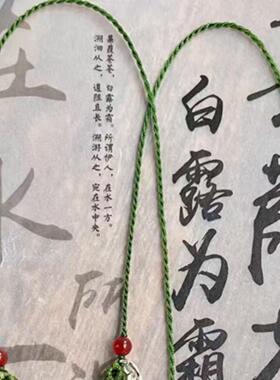 白露为霜
蒹葭苍苍，白露为霜。所谓伊人，在水一方。
溯洄从之，道阻且长。溯游从之，宛在水中央。
所
在水一